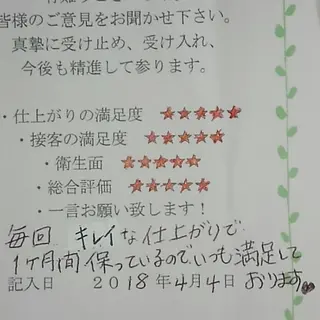 皆様のご意見をお聞かせ下さい。
真摯に受け止め、受け入れ、
今後も精進して参ります。
・仕上がりの満足度 ★★★★★
・接客の満足度 ★★★★★
・衛生面 ★★★★★
・総合評価 ★★★★★
・一言お願い致します！
毎回 キレイな仕上がりで
1ヶ月間保っているのでいつも満足して
おります。
記入日 2018年4月4日